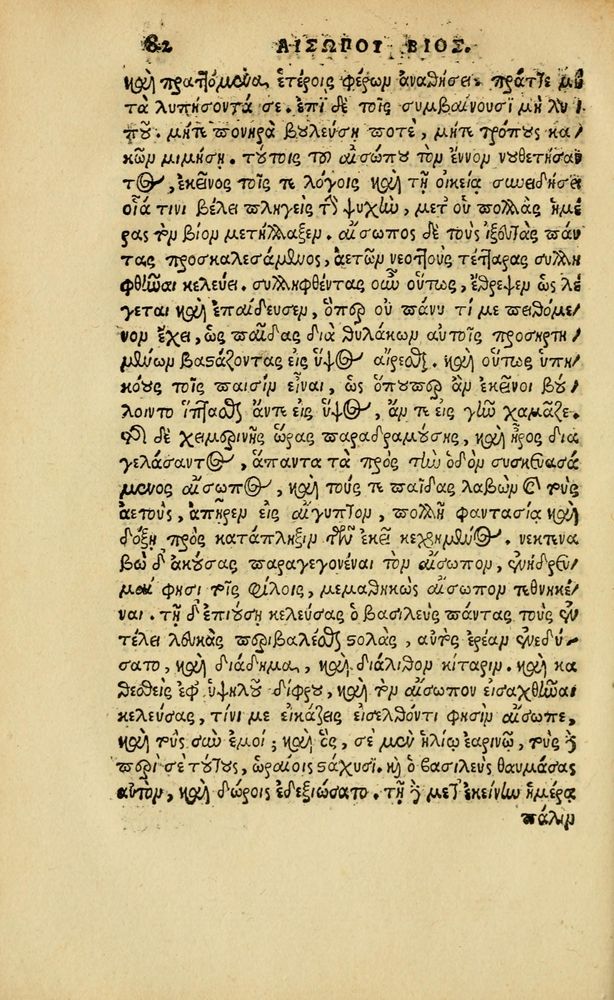 82 ΑΙΣΩΠΟΥ ΒΙΟΣ.
καὶ πραττόμενα, ἑτέροις φέρων ἀναθήσει. πράττε μὴ
τὰ λυπήσοντά σε. ἐπὶ δὲ τοῖς συμβαίνουσι μὴ λυ/
ποῦ. μήτε πονηρὰ βουλεύσῃ ποτὲ, μήτε τρόπους κα/
κῶν μιμήσῃ. τούτοις τοῦ αἰσώπου τὸν ἔννον νουθετήσαν
τος, ἐκεῖνος τοῖς τε λόγοις καὶ τῇ οἰκείᾳ συνειδήσει
οἷά τινι βέλει πληγεὶς τὴν ψυχὴν, μετ' οὐ πολλὰς ἡμέ
ρας τὸν βίον μετήλλαξεν. αἴσωπος δὲ τοὺς ἰξευτὰς πάν
τας προσκαλεσάμενος, ἀετῶν νεοττοὺς τέτταρας συλλη
φθῆναι κελεύει. συλληφθέντας οὖν οὕτως, ἔθρεψεν ὡς λέ
γεται καὶ ἐπαίδευσεν, ὅπερ οὐ πάνυ τί με πειθόμε/
νον ἔχει, ὡς παῖδας διὰ θυλάκων αὐτοῖς προσηρτη/
μένων βαστάζοντας εἰς ὕψος αἴρεσθαι. καὶ οὕτως ὑπη/
κόους τοῖς παισὶν εἶναι, ὡς ὅπουπερ ἂν ἐκεῖνοι βού/
λοιντο ἵπτασθαι ἄντε εἰς ὕψος, ἄν τε εἰς γῆν χαμᾶζε.
τῆς δὲ χειμερινῆς ὥρας παραδραμούσης, καὶ ἦρος δια
γελάσαντος, ἅπαντα τὰ πρὸς τὴν ὁδὸν συσκευασά
μενος αἴσωπος, καὶ τούς τε παῖδας λαβὼν καὶ τοὺς
ἀετοὺς, ἀπῆρεν εἰς αἴγυπτον, πολλῇ φαντασίᾳ καὶ
δόξῃ πρὸς κατάπληξιν τῶν ἐκεῖ κεχρημένος. νεκτενα
βὼ δ' ἀκούσας παραγεγονέναι τὸν αἴσωπον, ἐνήδρευ/
μαί φησι τοῖς φίλοις, μεμαθηκὼς αἴσωπον τεθνηκέ/
ναι. τῇ δ' ἐπιούσῃ κελεύσας ὁ βασιλεὺς πάντας τοὺς ἐν
τέλει λευκὰς περιβαλέσθαι στολὰς, αὐτὸς ἐρέαν ἐνεδύ/
σατο, καὶ διάδημα, καὶ διάλιθον κίταριν. καὶ κα
θεσθεὶς ἐφ' ὑψηλοῦ δίφρου, καὶ τὸν αἴσωπον εἰσαχθῆναι
κελεύσας, τίνι με εἰκάζεις εἰσελθόντι φησὶν αἴσωπε,
καὶ τοὺς σὺν ἐμοί; καὶ ὃς, σὲ μὲν ἡλίῳ ἐαρινῷ, τοὺς δὲ
περὶ σὲ τούτους, ὡραίοις στάχυσι. καὶ ὁ βασιλεὺς θαυμάσας
αὐτὸν, καὶ δώροις ἐδεξιώσατο. τῇ δὲ μετ' ἐκείνην ἡμέρᾳ
πάλιν